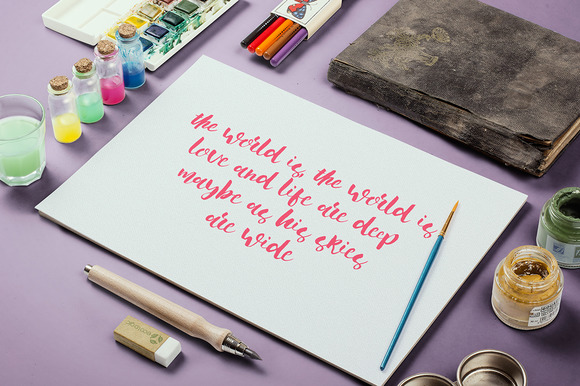 the world is the world is
love and life are deep
maybe as his skies
are wide